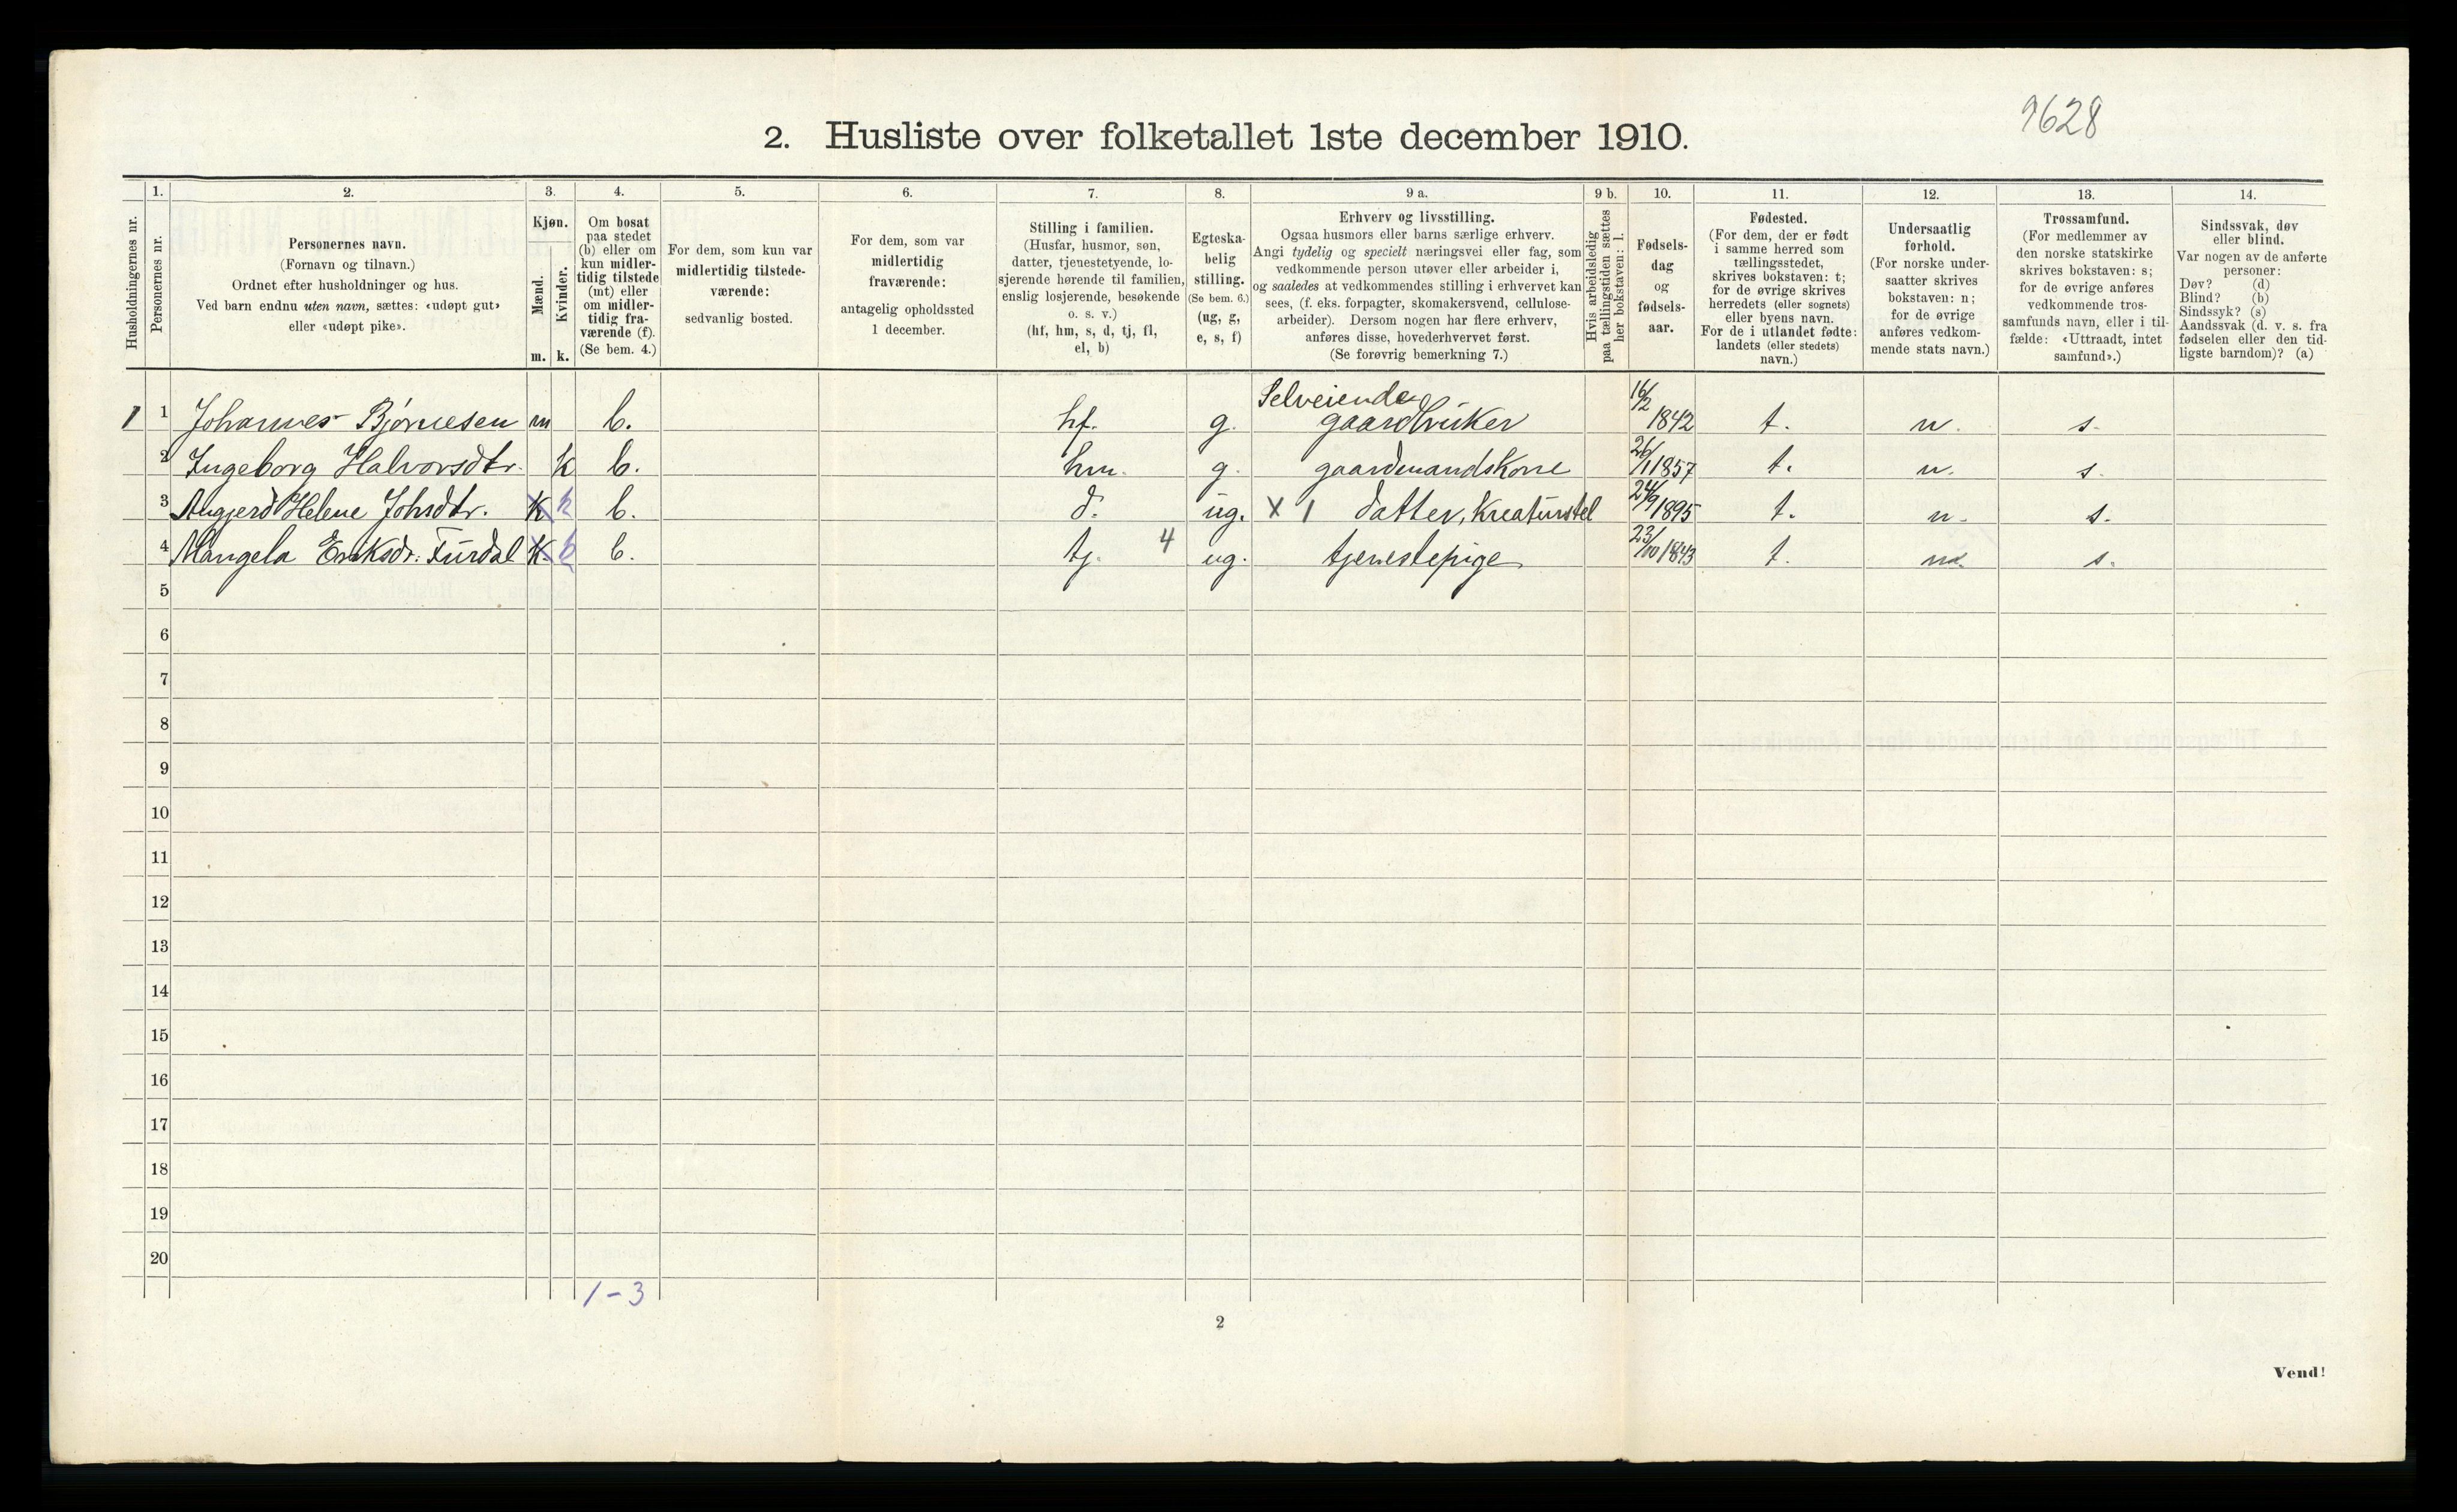 9628
2. Husliste over folketallet 1ste december 1910.
Husholdningernes nr.
1.
Personernes nr.
2.
Personernes navn.
(Fornavn og tilnavn.)
Ordnet efter husholdninger og hus.
Ved barn endnu uten navn, sættes: «udøpt gut»
eller «udøpt pike».
3.
Kjøn.
Mænd.
Kvinder.
m. k.
4.
Om bosat
paa stedet
(b) eller om
kun midler-
tidig tilstede
(mt) eller
om midler-
tidig fra-
værende (f).
(Se bem. 4.)
5.
For dem, som kun var
midlertidig tilstede-
værende:
sedvanlig bosted.
6.
For dem, som var
midlertidig
fraværende:
antagelig opholdssted
1 december.
7.
Stilling i familien.
(Husfar, husmor, søn,
datter, tjenestetyende, lo-
sjerende hørende til familien,
enslig losjerende, besøkende
o. s. v.)
(hf, hm, s, d, tj, fl,
el, b)
8.
Egteska-
belig
stilling.
(Se bem. 6.)
(ug, g,
e, s, f)
9 a.
Erhverv og livsstilling.
Ogsaa husmors eller barns særlige erhverv.
Angi tydelig og specielt næringsvei eller fag, som
vedkommende person utøver eller arbeider i,
og saaledes at vedkommendes stilling i erhvervet kan
sees, (f. eks. forpagter, skomakersvend, cellulose-
arbeider). Dersom nogen har flere erhverv,
anføres disse, hovederhvervet først.
(Se forøvrig bemerkning 7.)
9 b.
Hvis arbeidsledig
paa tællingstiden sættes
her bokstaven: l.
10.
Fødsels-
dag
og
fødsels-
aar.
11.
Fødested.
(For dem, der er født
i samme herred som
tællingsstedet,
skrives bokstaven: t;
for de øvrige skrives
herredets (eller sognets)
eller byens navn.
For de i utlandet fødte:
landets (eller stedets)
navn.)
12.
Undersaatlig
forhold.
(For norske under-
saatter skrives
bokstaven: n;
for de øvrige
anføres vedkom-
mende stats navn.)
13.
Trossamfund.
(For medlemmer av
den norske statskirke
skrives bokstaven: s;
for de øvrige anføres
vedkommende tros-
samfunds navn, eller i til-
fælde: «Uttraadt, intet
samfund».)
14.
Sindssvak, døv
eller blind.
Var nogen av de anførte
personer:
Døv? (d)
Blind? (b)
Sindssyk? (s)
Aandssvak (d. v. s. fra
fødselen eller den tid-
ligste barndom)? (a)
1 1 Johannes Bjørnesen m b. hf. g. Selveiende gaardbruker 16/2 1842 t. n. s.
2 Ingeborg Halvorsdtr. k b. hm. g. gaardmandskone 26/1 1857 t. n. s.
3 Helene Johsdtr. k k b. d. ug. x 1 datter, Kreaturstel 24/9 1895 t. n. s.
4 Mangela Eriksdr. Furdal k k b. tj. 4 ug. tjenestepige 23/10 1843 t. n. s.
5
6
7
8
9
10
11
12
13
14
15
16
17
18
19
20
1 - 3
2
Vend!